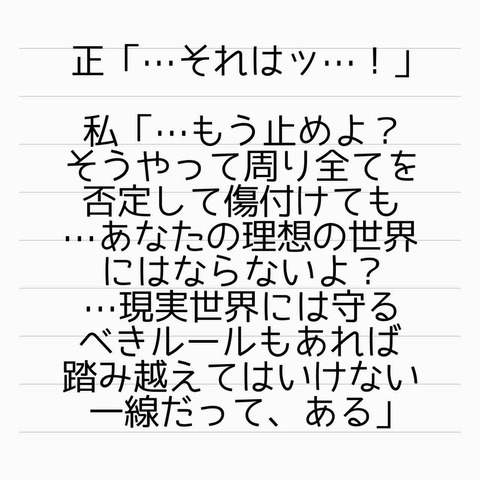 正「…それはッ…！」
私「…もう止めよ？
そうやって周り全てを
否定して傷付けても
…あなたの理想の世界
にはならないよ？
…現実世界には守る
べきルールもあれば
踏み越えてはいけない
一線だって、ある」